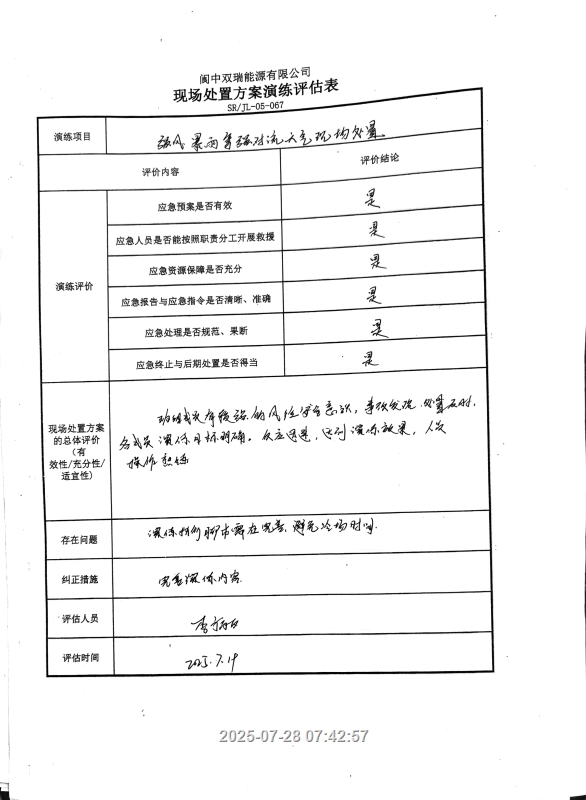 阆中双瑞能源有限公司
现场处置方案演练评估表
SR/JL-05-067
演练项目
强风暴雨等强对流天气现场处置
评价内容
评价结论
演练评价
应急预案是否有效
是
应急人员是否能按照职责分工开展救援
是
应急资源保障是否充分
是
应急报告与应急指令是否清晰、准确
是
应急处理是否规范、果断
是
应急终止与后期处置是否得当
是
现场处置方案
的总体评价
(有
效性/充分性/
适宜性)
成员有较强的风险安全意识，事故发现、处置及时，
各成员演练目标明确。反应迅速，达到演练效果，人员
操作熟练
存在问题
演练 需在完善，避免冷场时间.
纠正措施
完善演练内容
评估人员
李
评估时间
2025.7.19
2025-07-28 07:42:57